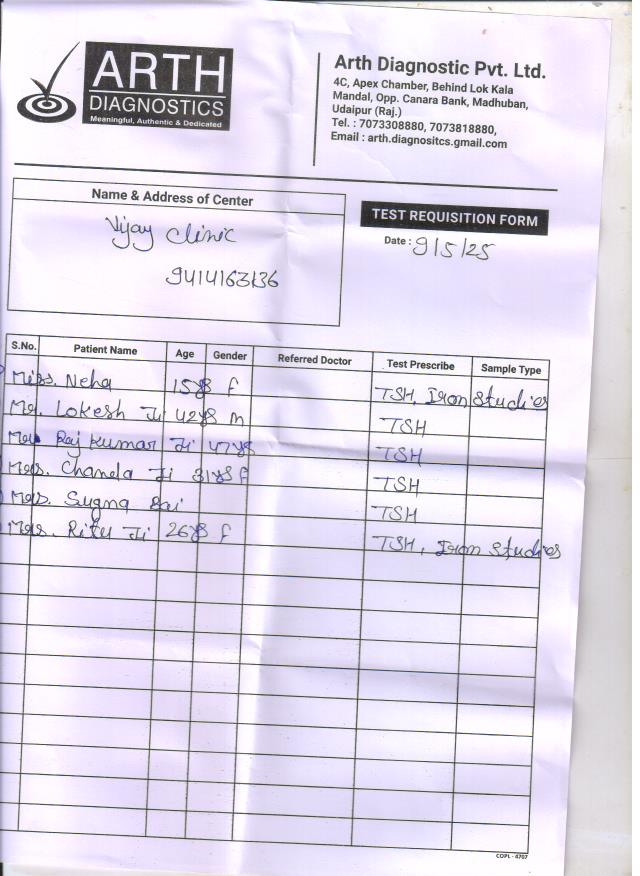 ARTH
DIAGNOSTICS
Meaningful, Authentic & Dedicated
Arth Diagnostic Pvt. Ltd.
4C, Apex Chamber, Behind Lok Kala
Mandal, Opp. Canara Bank, Madhuban,
Udaipur (Raj.)
Tel. : 7073308880, 7073818880,
Email : arth.diagnositcs.gmail.com
Name & Address of Center
Vijay Clinic
9414163136
TEST REQUISITION FORM
Date : 9/5/25
S.No. Patient Name Age Gender Referred Doctor Test Prescribe Sample Type
Miss. Neha 15 yrs F TSH, Iron Studies
Mr. Lokesh Ji 42 yrs M TSH
Raj Kumar Ji 47 yrs TSH
Mrs. Chanda Ji 31 yrs F TSH
Mrs. Sugna Bai TSH
Mrs. Ritu Ji 26 yrs F TSH, Iron Studies
COPL - 4707